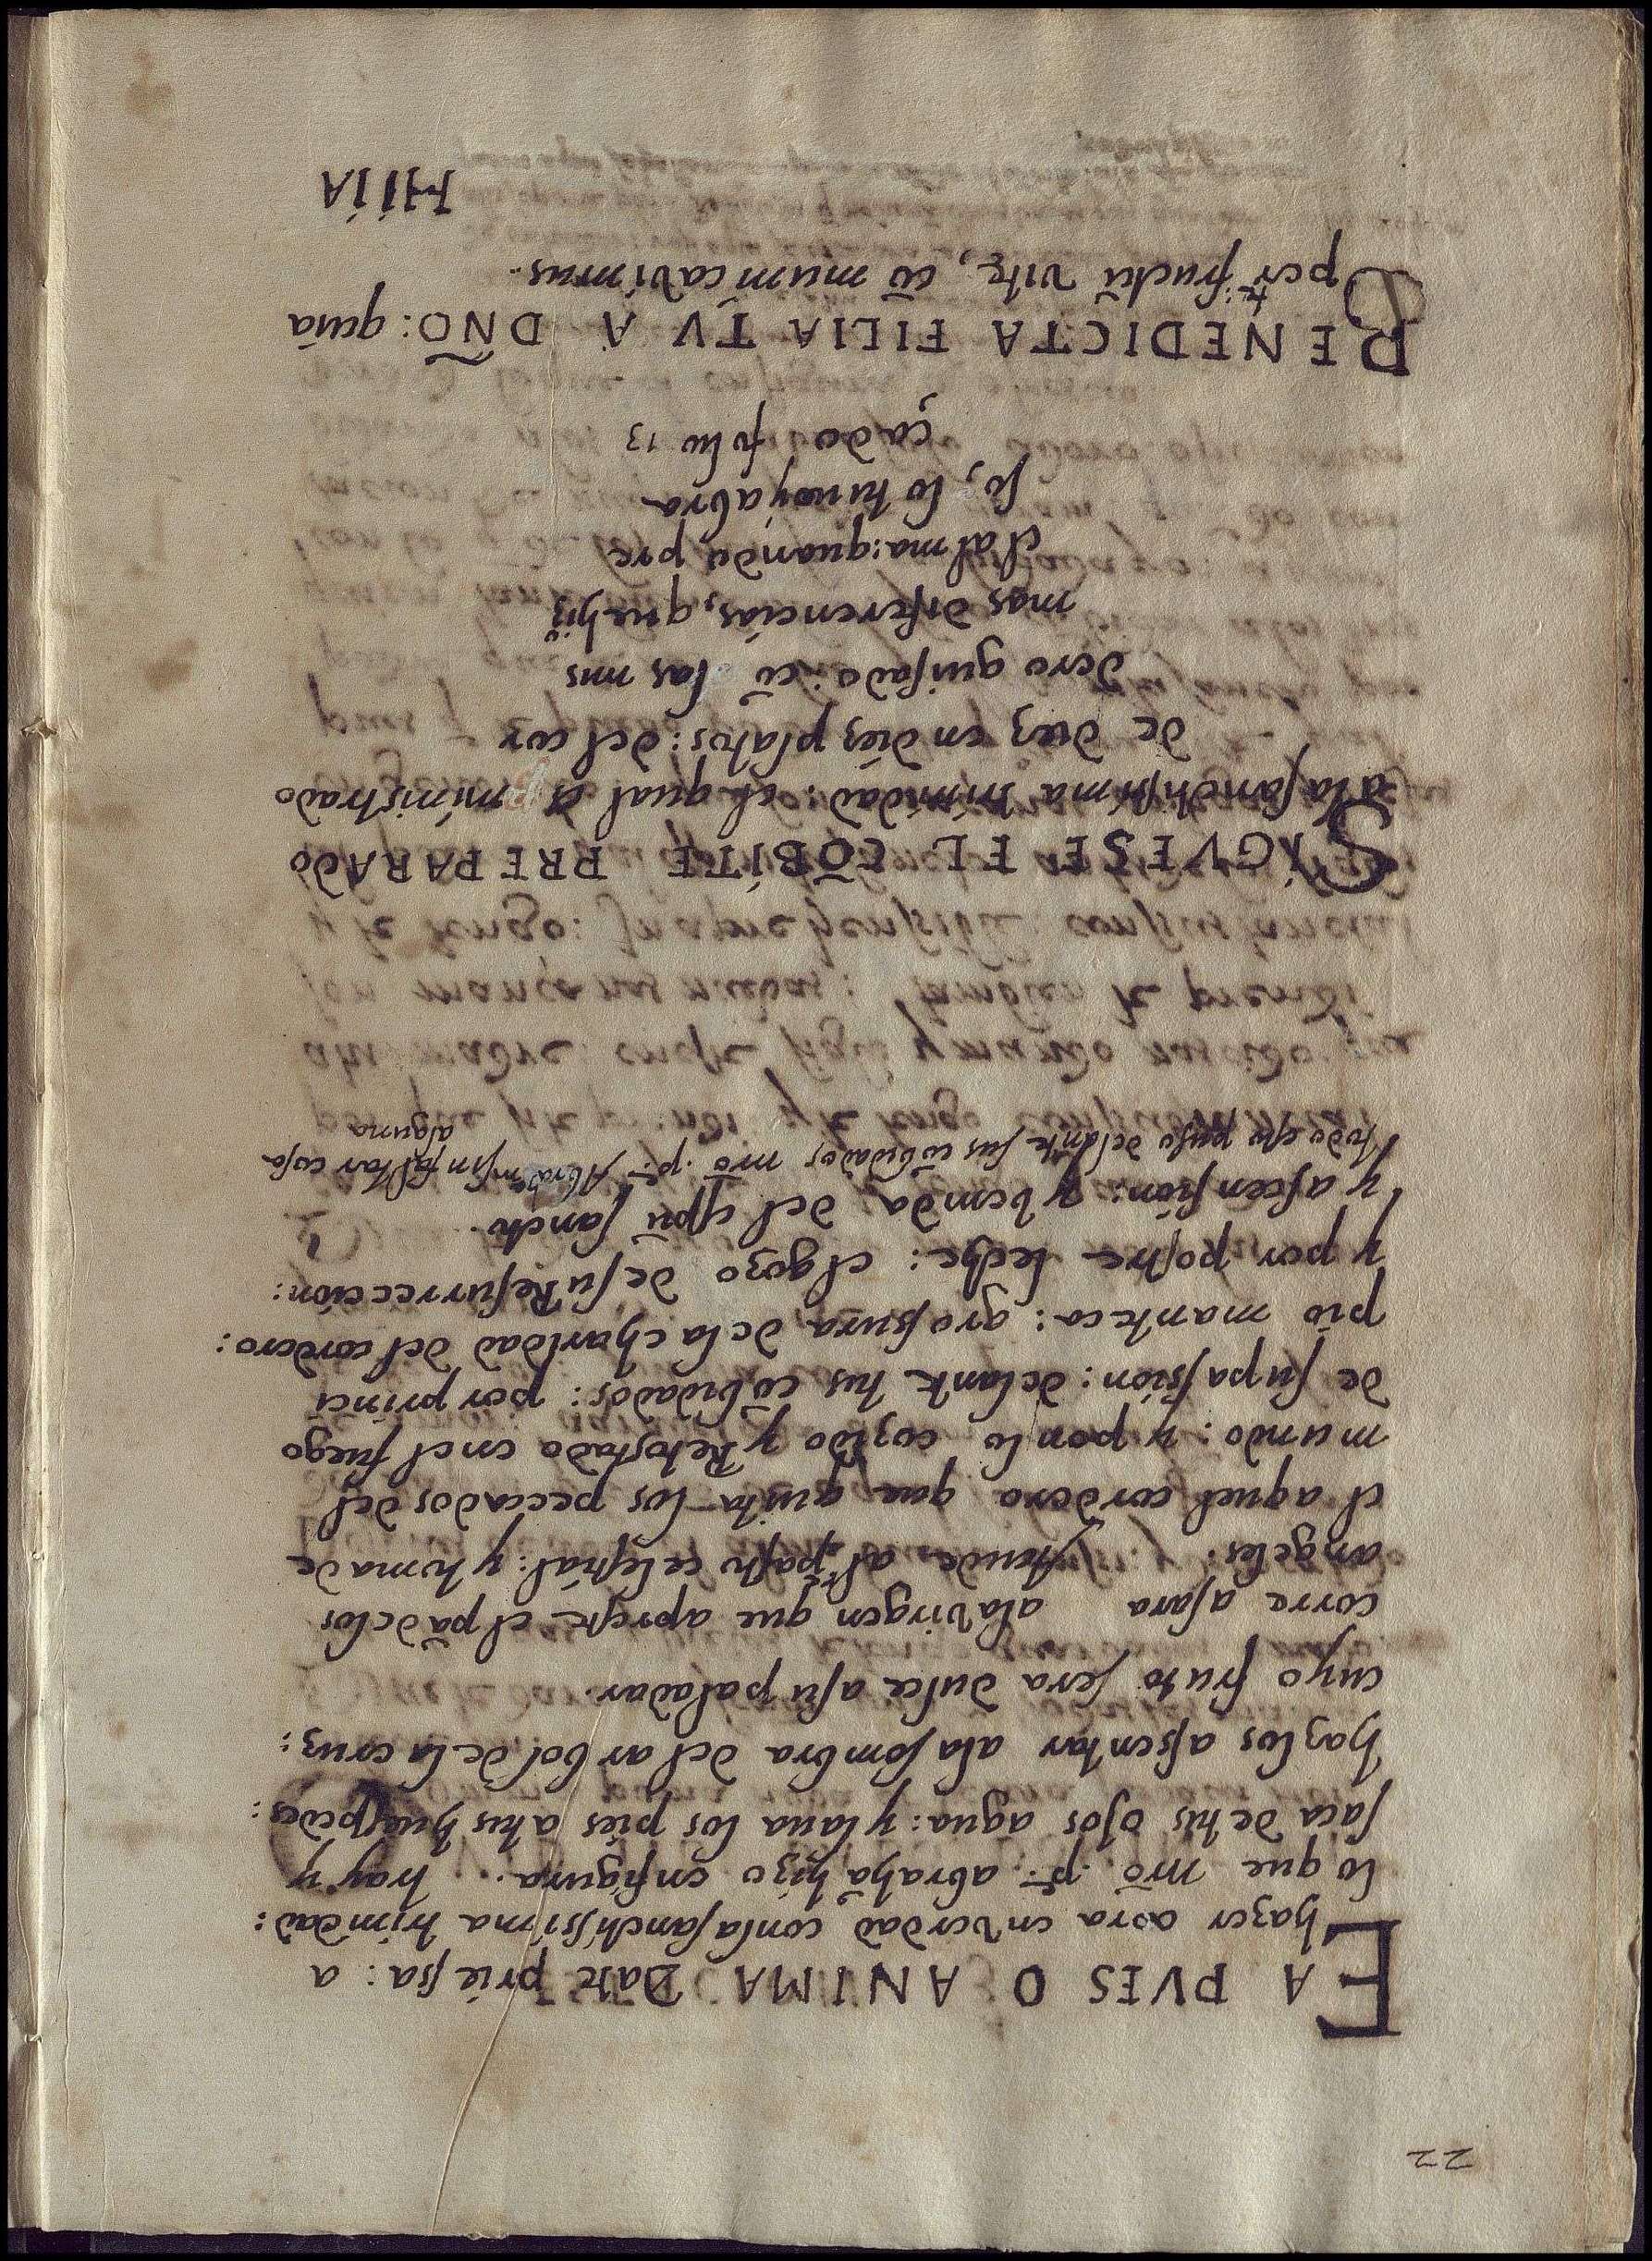 22
EA PVES O ANIMA Date priessa: a
hazer aora en verdad con la sanctissima trinidad:
lo que nrõ pe abrahã hizo en figura. tray y
saca de tus ojos agua: y laua los pies a tus huespedes:
hazlos assentar ala sombra del arbol de la cruz:
cuyo fruto sera dulce a su paladar.
corre a sara ala virgen que apreste el pã de los
angeles: acude al pasto celestial: y toma de
el aquel cordero que quita los peccados del
mundo: y ponlo cozido y Retostado en el fuego
de su passion: delante tus cõbidados: por princi
pio manteca: grossura de la charidad del cordero:
y por postre leche: el gozo de su Resurreccion:
y ascension: y benida del spũ sancto.
todo esto puso delante sus cõbidados nrõ pe Abraam sin faltar cosa
alguna
SIGVESE EL CÕBITE PREPARADO
ala sanctissima trinidad: el qual es ministrado
de diez en diez platos: del cor
dero guisado: cõ las mis
mas diferencias, que hizo
el alma: quando pre
so, lo tuvo y abra
çado folio 13
BENEDICTA FILIA TV A DÑO: quia
per te: fructũ vitę, cõmunicavimus.
HIIA